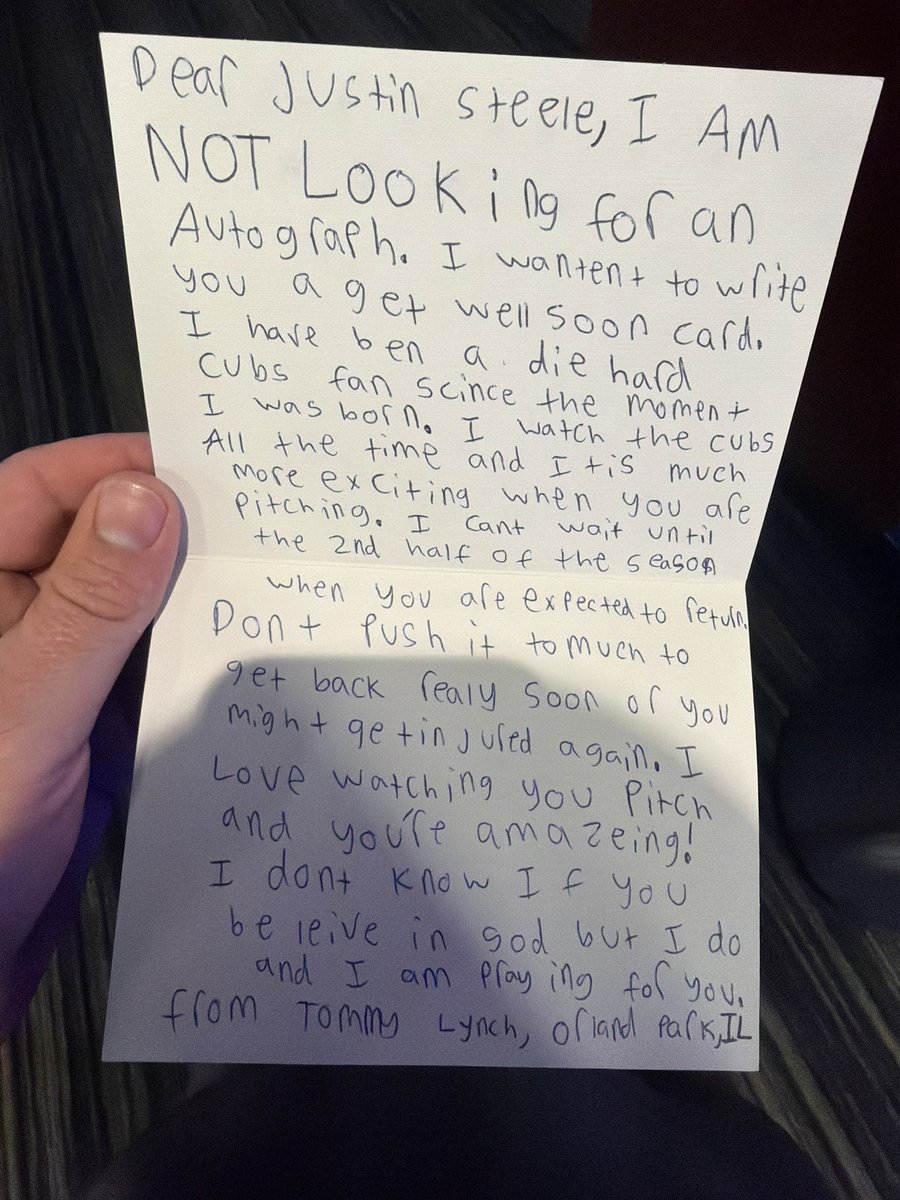 Dear Justin Steele, I AM
NOT LOOKing for an
Autograph. I wantent to write
you a get well soon card.
I have ben a die hard
Cubs fan scince the moment
I was born. I watch the cubs
All the time and I tis much
more exciting when you are
pitching. I cant wait until
the 2nd half of the season
when you are expected to return.
Dont push it to much to
get back realy soon or you
might get injured again. I
Love watching you Pitch
and you're amazeing!
I dont know If you
beleive in god but I do
and I am praying for you.
from Tommy Lynch, Orland Park, IL